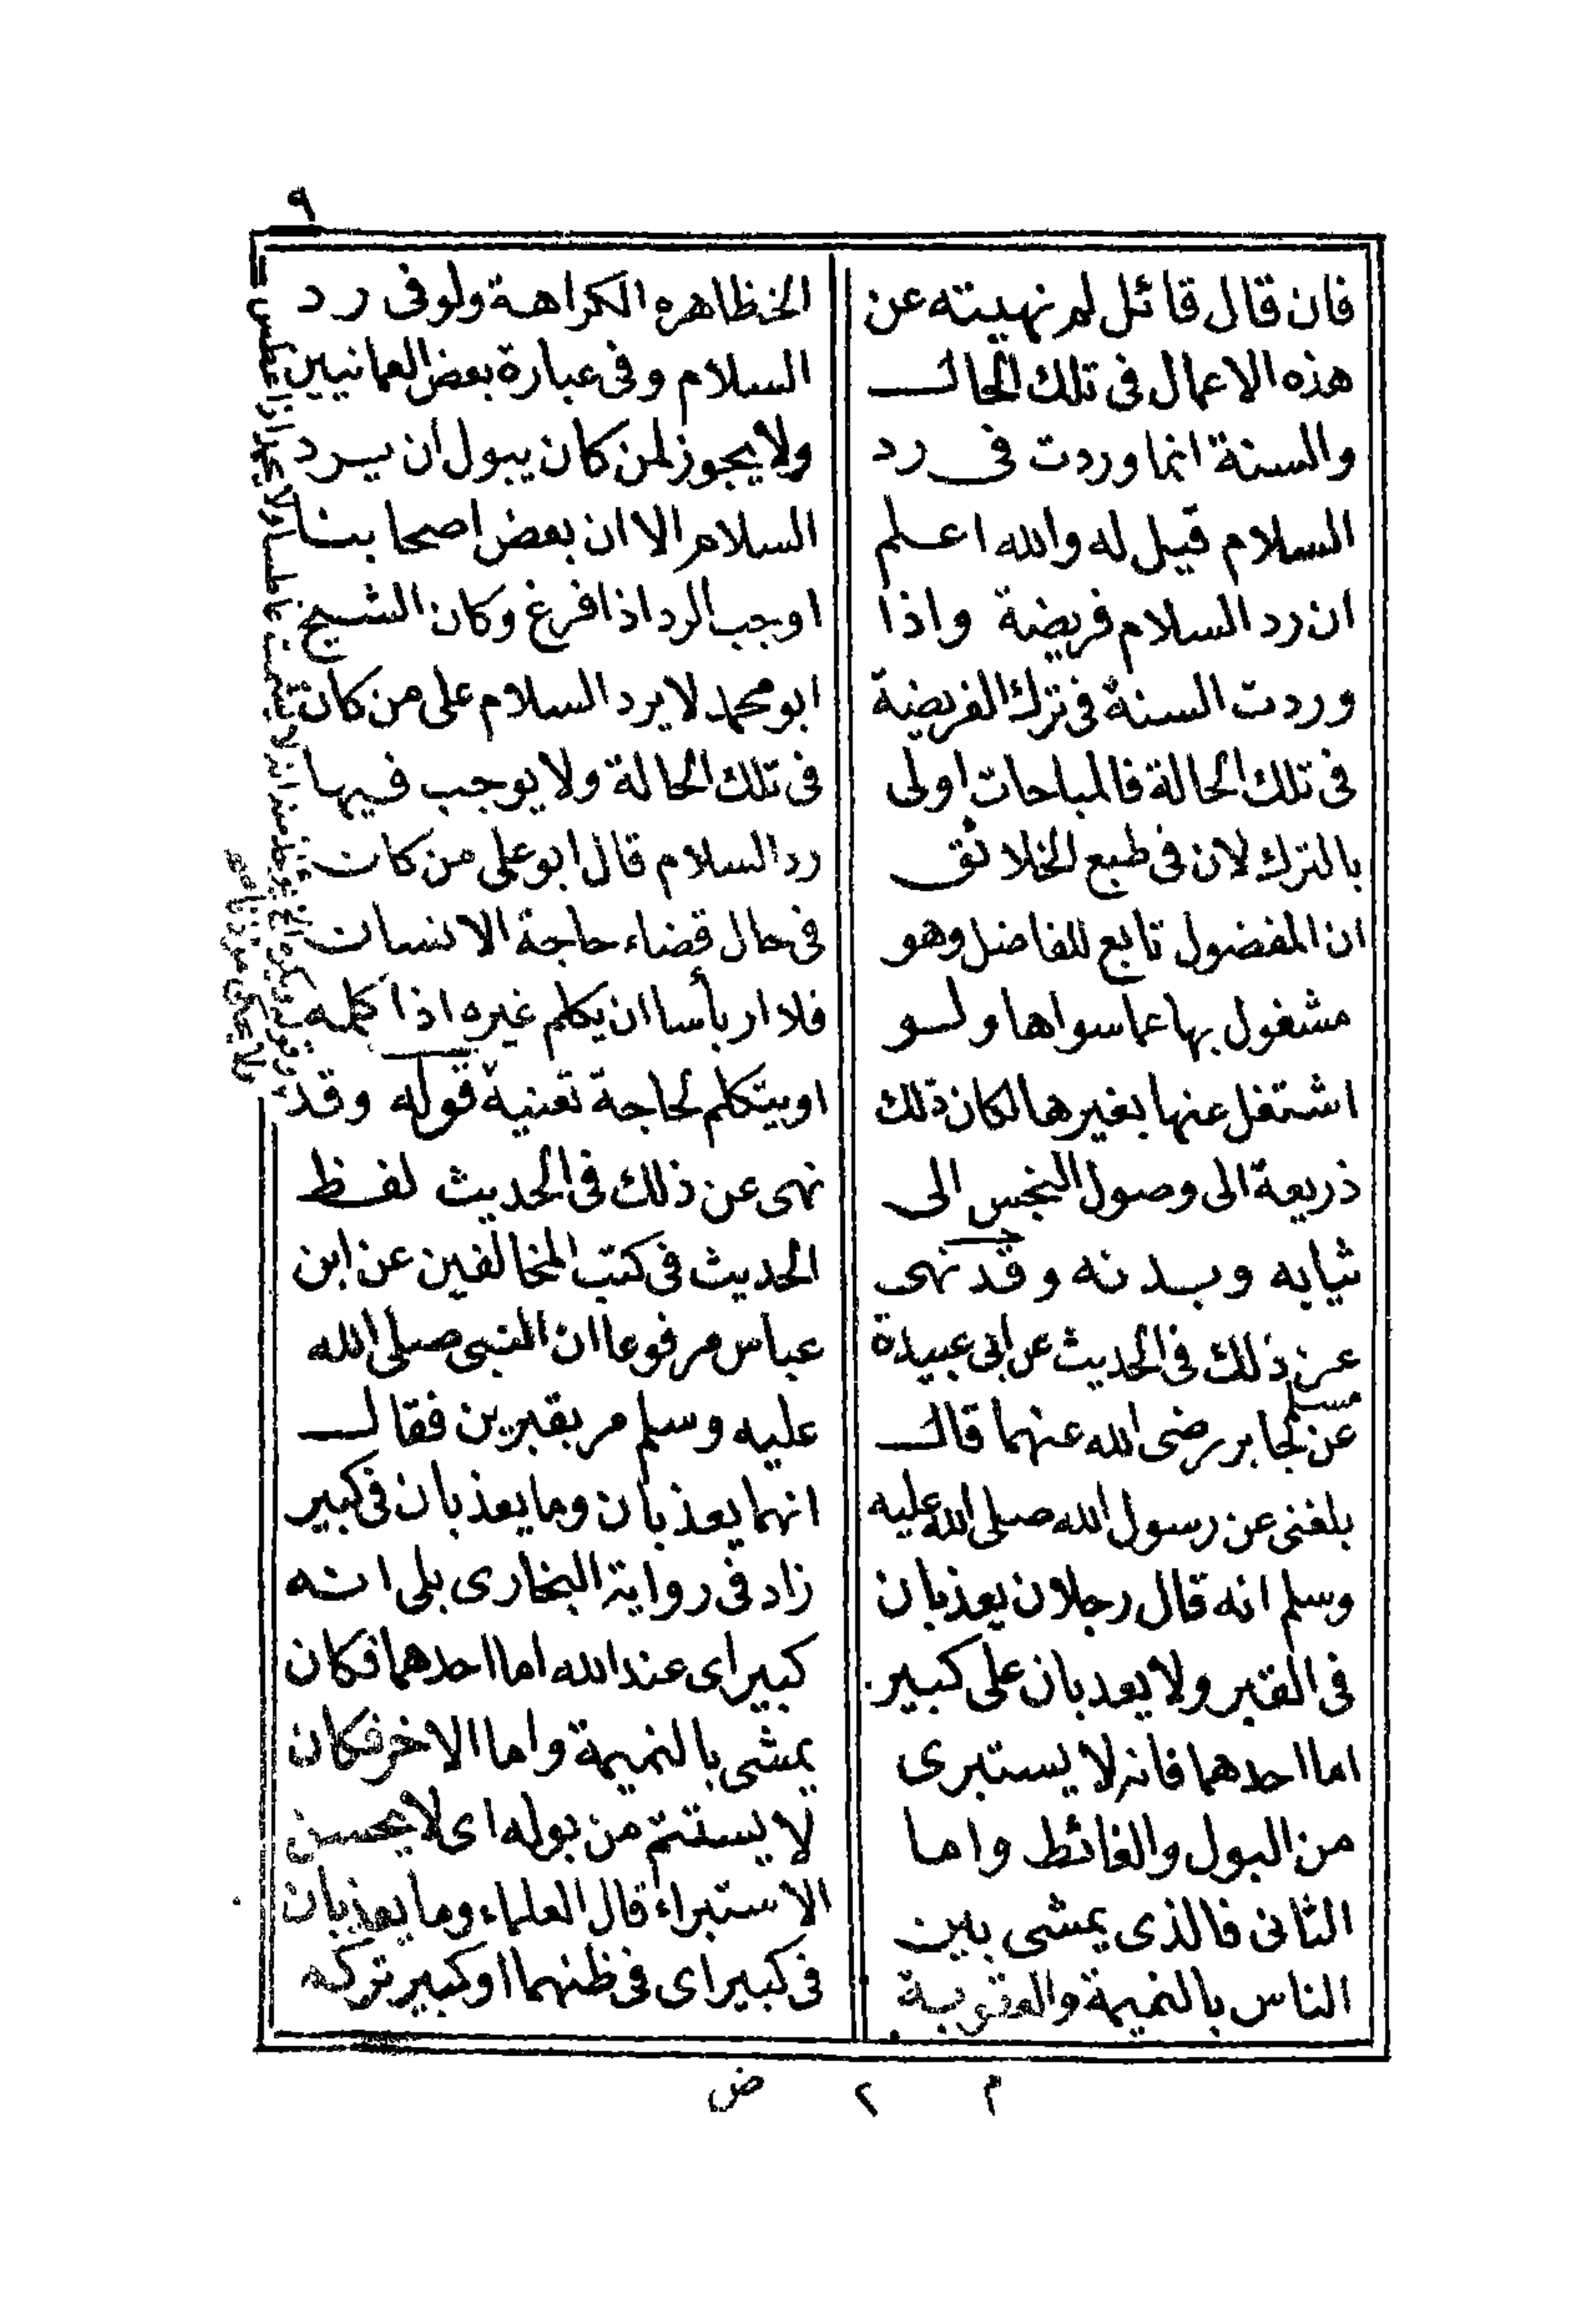 ٩
فان قال قائل لم نهيته عن
هذه الاعمال فى تلك الحال
والسنة انما وردت فى رد
السلام قيل له والله اعلم
ان رد السلام فريضة واذا
وردت السنة فى ترك الفريضة
فى تلك الحالة فالمباحات اولى
بالترك لان فى طبع الخلائق
ان المفضول تابع للفاضل وهو
مشغول بها عما سواها ولو
اشتغل عنها بغيرها لكان ذلك
ذريعة الى وصول النجس الى
ثيابه وبدنه وقد نهى
عن ذلك فى الحديث عن ابى عبيدة
مسلم
عن جابر رضى الله عنهما قال
بلغنى عن رسول الله صلى الله عليه
وسلم انه قال رجلان يعذبان
فى القبر ولا يعذبان على كبير
اما احدهما فانه لا يستبرى
من البول والغائط واما
الثانى فالذى يمشى بين
الناس بالنميمة والعقوبة
الخ ظاهره الكراهة ولو فى رد
السلام وفى عبارة بعض العمانيين
ولا يجوز لمن كان يبول ان يرد
السلام الا ان بعض اصحابنا
اوجب الرد اذا فرغ وكان الشيخ
ابو محمد لا يرد السلام على من كان
فى تلك الحالة ولا يوجب فيها
رد السلام قال ابو على من كان
فى حال قضاء حاجة الانسان
فلا ار بأسا ان يكلم غيره اذا كلمه
او يتكلم لحاجة تعنيه قوله وقد
نهى عن ذلك فى الحديث لفظ
الحديث فى كتب المخالفين عن ابن
عباس مرفوعا ان النبى صلى الله
عليه وسلم مر بقبرين فقال
انهما يعذبان وما يعذبان فى كبير
زاد فى رواية البخارى بلى انه
كبير اى عند الله اما احدهما فكان
يمشى بالنميمة واما الاخر فكان
لا يستتم من بوله اى لا يحسن
الاستبراء قال العلماء وما يعذبان
فى كبير اى فى ظنهما او كبير تركه
م ٢ ض